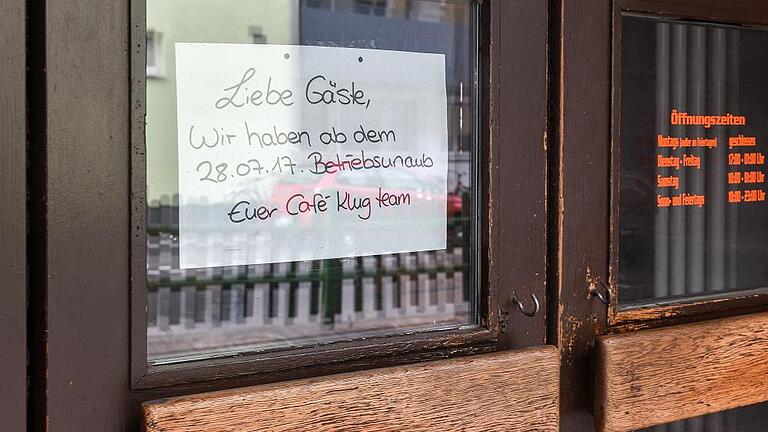 Liebe Gäste,
Wir haben ab dem
28.07.17. Betriebsurlaub
Euer Café Klug team
Öffnungszeiten
Montags (außer an Feiertagen) geschlossen
Dienstag - Freitag 17:00 - 01:00 Uhr
Samstag 18:00 - 01:00 Uhr
Sonn- und Feiertags 10:00 - 23:00 Uhr